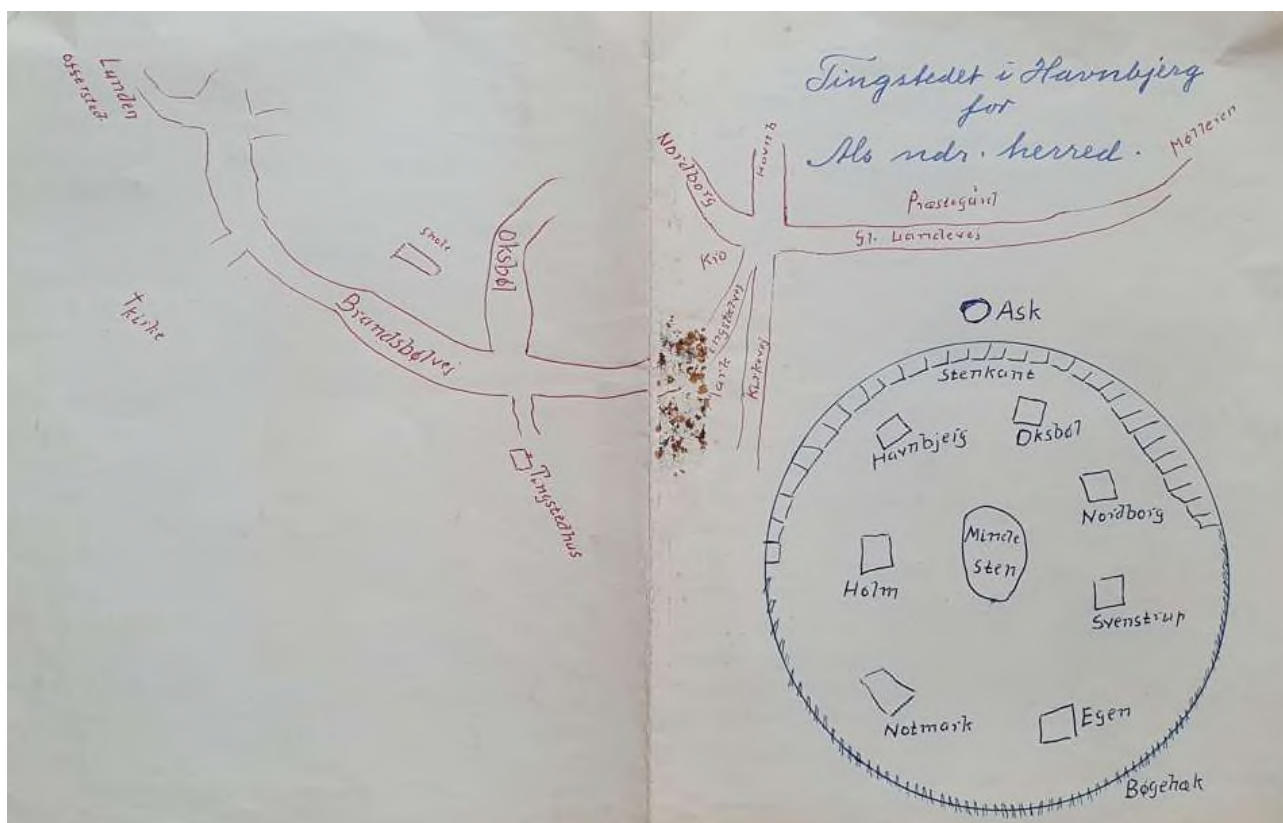 Tingstedet i Havnbjerg
for
Als ndr. herred.
Lunden
offersted.
Skole
Oksbøl
Brandsbølvej
Kirke
Tingstedhus
Nordborg
Havnb
Møllevej
Præstegård
Gl. Landevej
Kro
Kirkevej
Ask
Stenkant
Havnbjerg
Oksbøl
Nordborg
Minde
Sten
Holm
Svenstrup
Notmark
Egen
Bøgehæk